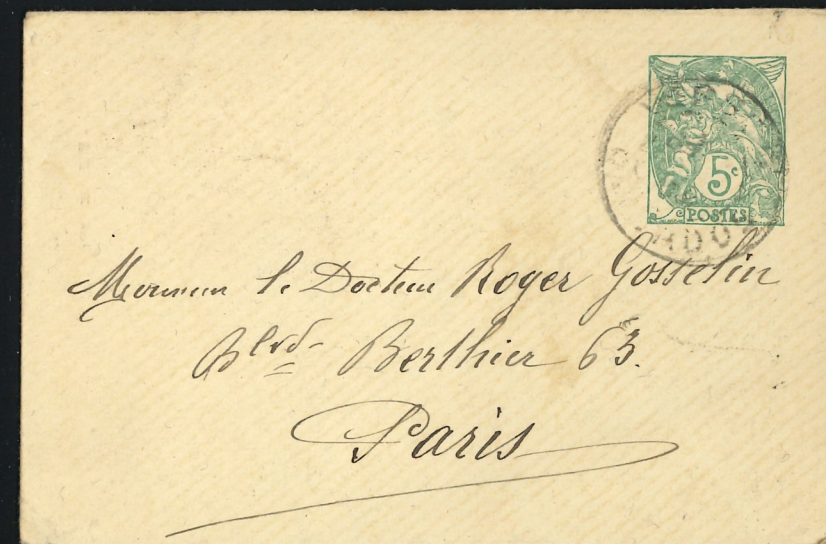 5c
POSTES
Monsieur le Docteur Roger Gosselin
Blvd Berthier 63.
Paris